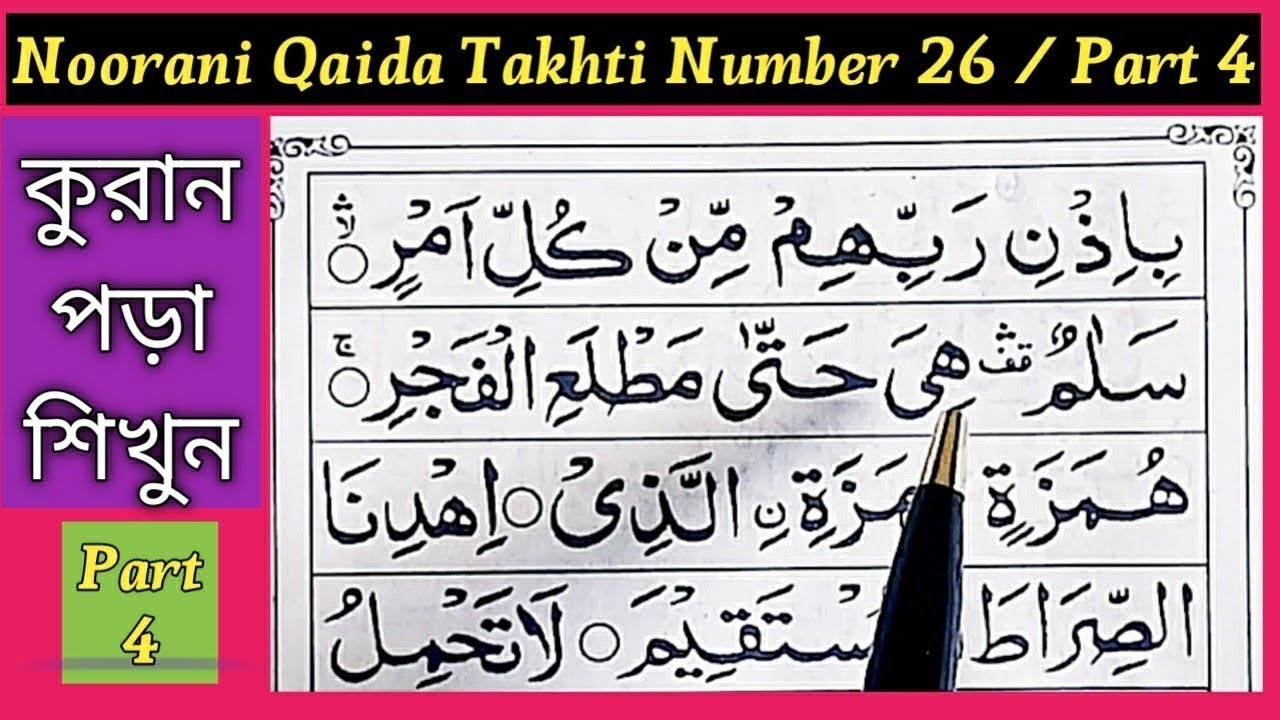 Noorani Qaida Takhti Number 26 / Part 4
কুরান
পড়া
শিখুন
Part
4
بِاِذْنِ رَبِّهِمْ مِّنْ كُلِّ اَمْرٍ ۙۛ○
سَلٰمٌ ۛقف هِیَ حَتّٰی مَطْلَعِ الْفَجْرِ ۚ○
هُمَزَةٍ نِ الَّذِیْ ○ اِهْدِنَا
الصِّرَاطَ ○ لَا تَحْمِلُ